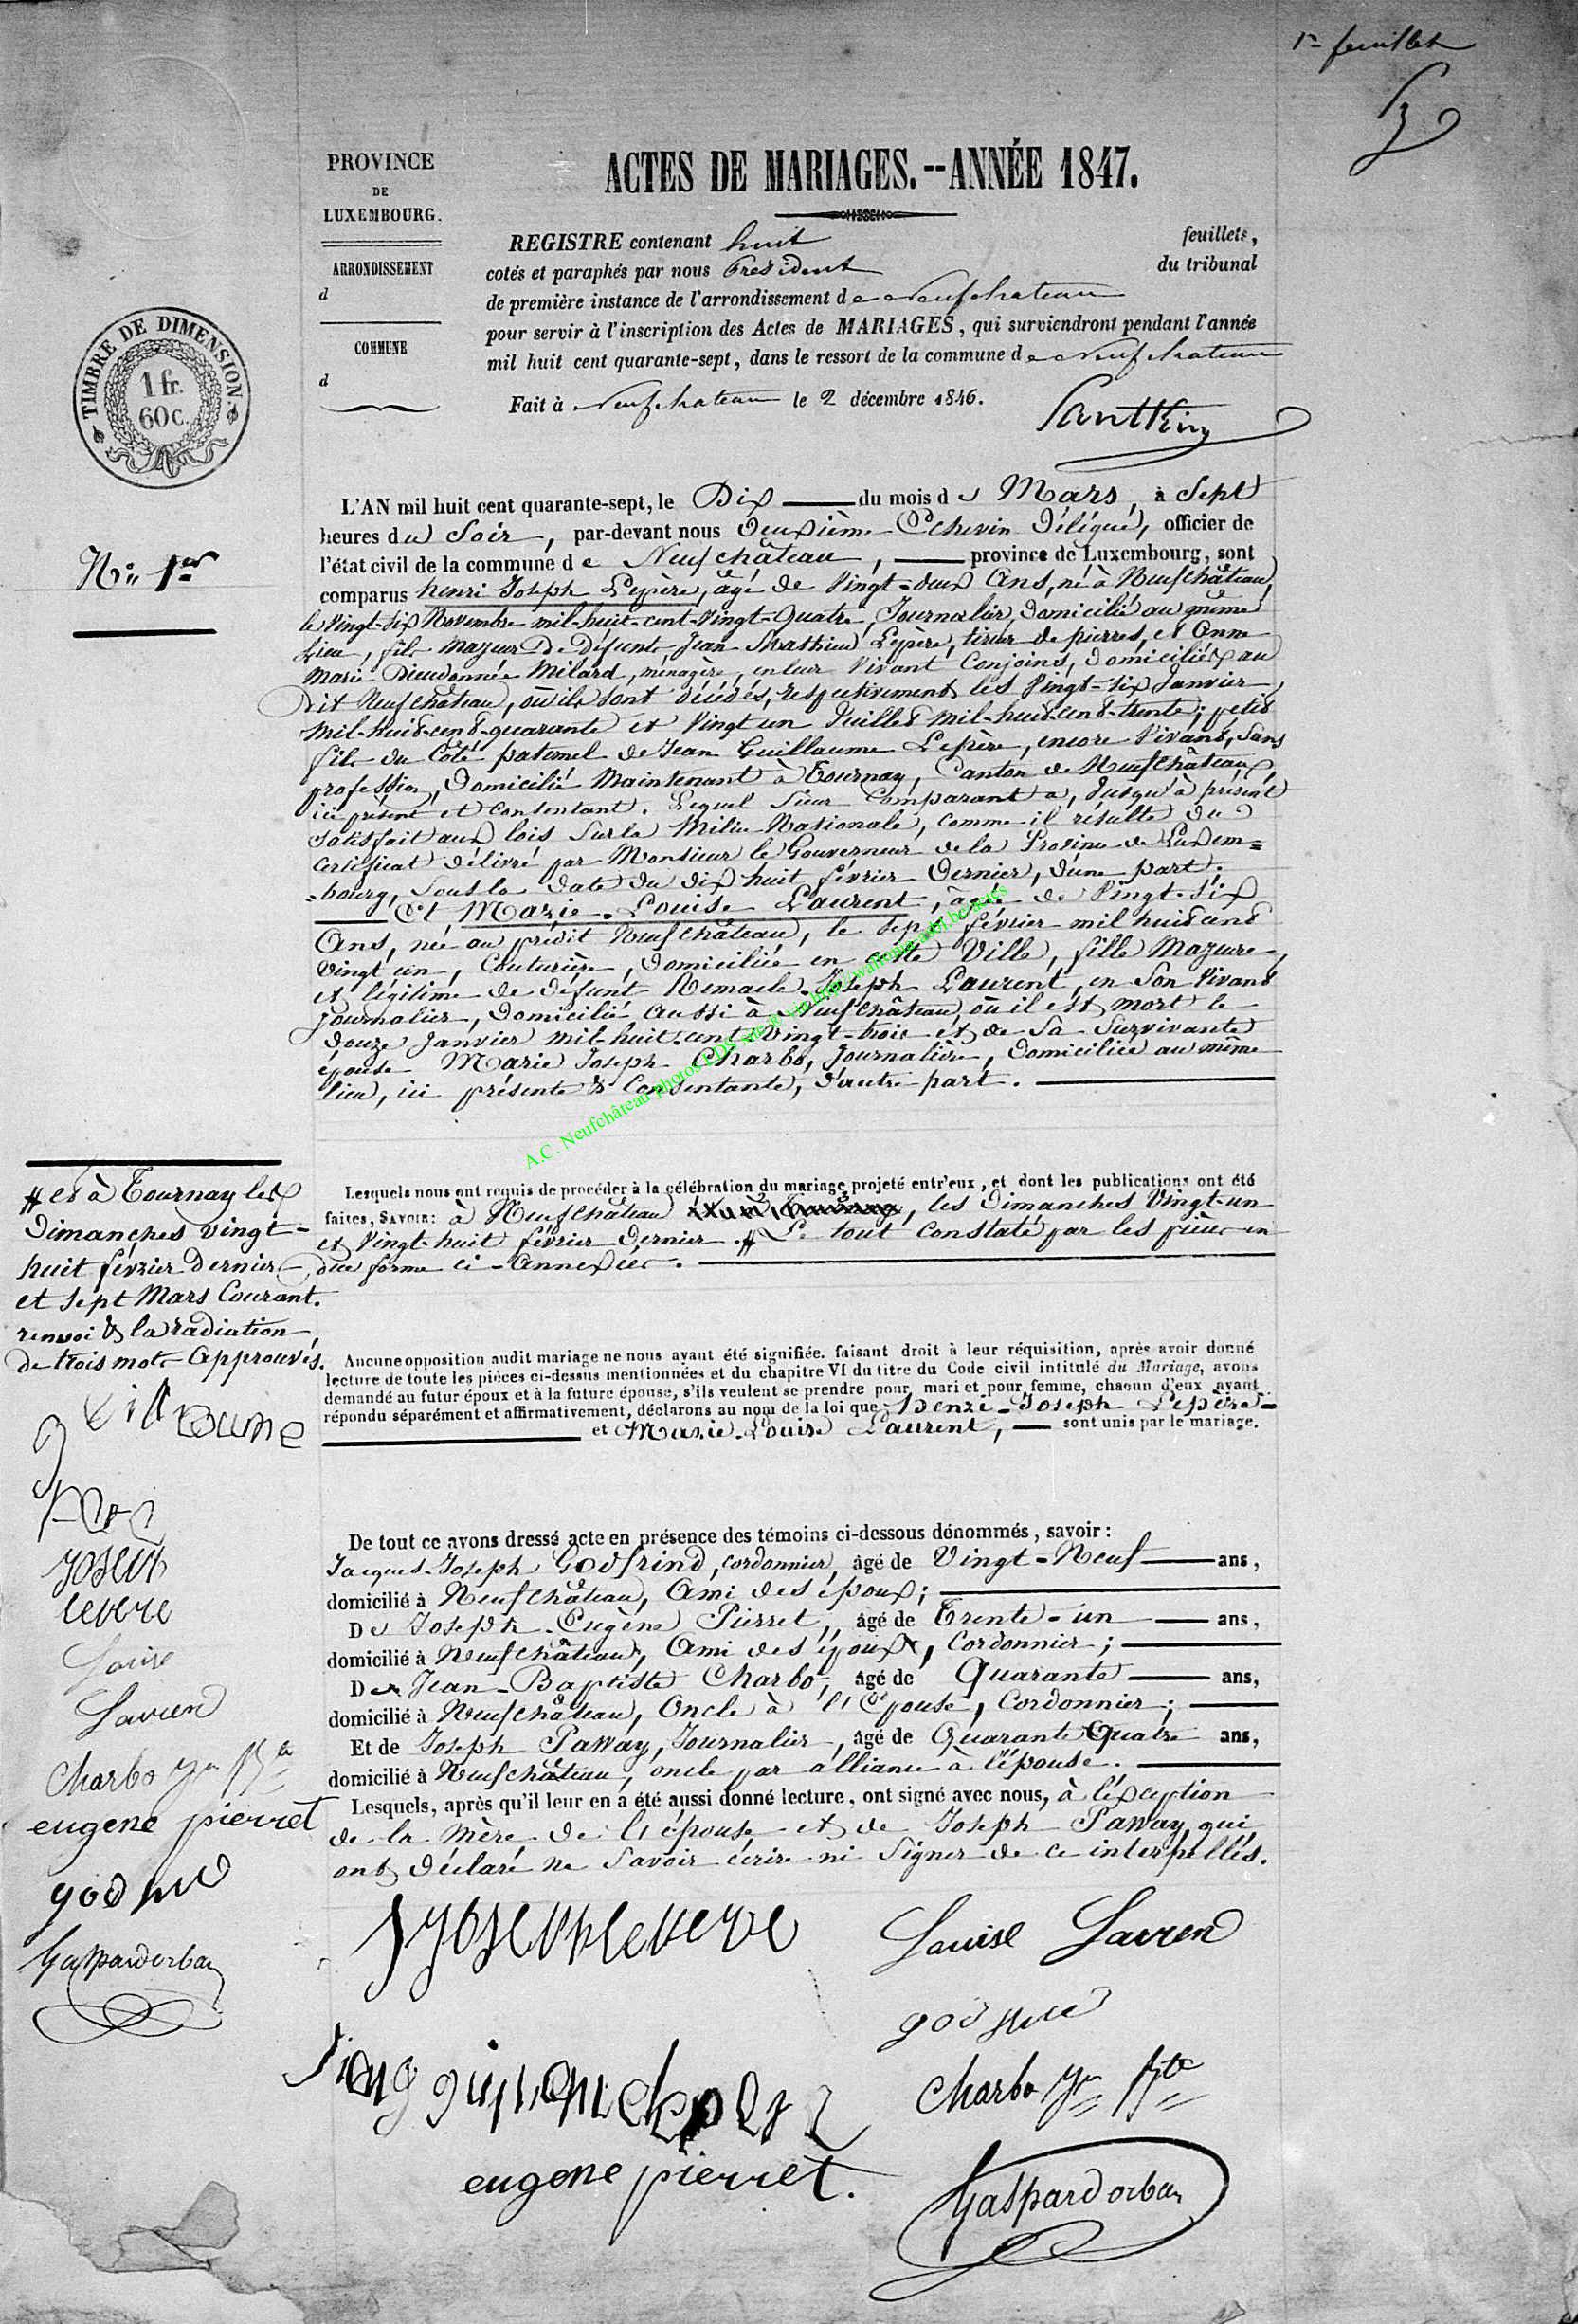 1er feuillet
PROVINCE
DE
LUXEMBOURG.
ARRONDISSEMENT
d
COMMUNE
d
TIMBRE DE DIMENSION.
1 fr.
60 c.
ACTES DE MARIAGES.--ANNÉE 1847.
REGISTRE contenant huit feuillets,
cotés et paraphés par nous Président du tribunal
de première instance de l'arrondissement de Neufchateau
pour servir à l'inscription des Actes de MARIAGES, qui surviendront pendant l'année
mil huit cent quarante-sept, dans le ressort de la commune de Neufchateau
Fait à Neufchateau le 2 décembre 1846.
N° 1er
L'AN mil huit cent quarante-sept, le Dix du mois de Mars, à Sept
heures du Soir, par-devant nous Deuxième Echevin Délégué, officier de
l'état civil de la commune de Neufchâteau, province de Luxembourg, sont
comparus henri Joseph Lepère, âgé de Vingt-deux Ans, né à Neufchâteau,
le Vingt-Six Novembre mil-huit-cent-Vingt-Quatre, Journalier, Domicilié au même
Lieu, fils Majeur De Défunts Jean Mathieu Lepère, tireur de pierres, et Anne
Marie Dieudonnée Milard, ménagère, en leur Vivant Conjoins, Domiciliés au
Dit Neufchâteau, où ils sont décédés, respectivement les Vingt-six Janvier
Mil-huit-cent-quarante et Vingt un Juillet mil-huit-cent-trente; petit
fils du Côté paternel de Jean Guillaume Lepère, encore Vivant, Sans
profession, Domicilié Maintenant à Tournay, Canton de Neufchâteau,
ici présent et Consentant. Lequel Sieur Comparant a, Jusqu'à présent
Satisfait aux lois Sur la Milice Nationale, comme il résulte du
Certificat délivré par Monsieur le Gouverneur de la Province de Luxem=
=bourg, Sous la Date du dix huit février Dernier, d'une part.
Et Marie-Louise Laurent, âgée de Vingt-Six
Ans, née au prédit Neufchâteau, le Sept février mil huit cent
Vingt un, Couturière, Domiciliée en cette Ville, fille Majeure
et légitime de défunt Remacle Joseph Laurent, en Son Vivant
Journalier, Domicilié Aussi à Neufchâteau, où il est mort le
Douze Janvier mil-huit-cent-Vingt-trois et de Sa Survivante
épouse Marie Joseph Charbo, Journalière, Domiciliée au même
lieu, ici présente & Consentante, d'autre part.
A.C. Neufchâteau photos
Lesquels nous ont requis de procéder à la célébration du mariage projeté entr'eux, et dont les publications ont été
faites, SAVOIR: à Neufchâteau, les Dimanches Vingt-un
et Vingt-huit février Dernier. # Le tout Constaté par les pièces en
due forme ci-Annexées.
# et à Tournay les
Dimanches vingt-
huit février Dernier
et Sept Mars Courant.
renvoi & la radiation
de trois mots Approuvés.
Aucune opposition audit mariage ne nous ayant été signifiée, faisant droit à leur réquisition, après avoir donné
lecture de toute les pièces ci-dessus mentionnées et du chapitre VI du titre du Code civil intitulé du Mariage, avons
demandé au futur époux et à la future épouse, s'ils veulent se prendre pour mari et pour femme, chacun d'eux ayant
répondu séparément et affirmativement, déclarons au nom de la loi que Henri-Joseph Lepère
et Marie-Louise Laurent, sont unis par le mariage.
De tout ce avons dressé acte en présence des témoins ci-dessous dénommés, savoir:
Jacques-Joseph Godfrind, cordonnier, âgé de Vingt-Neuf ans,
domicilié à Neufchâteau, Ami des époux;
De Joseph-Eugène Pierret, âgé de Trente-un ans,
domicilié à Neufchâteau, Ami des époux, Cordonnier;
De Jean-Baptiste Charbo, âgé de Quarante ans,
domicilié à Neufchâteau, Oncle à l'Epouse, Cordonnier;
Et de Joseph Paway, Journalier, âgé de Quarante Quatre ans,
domicilié à Neufchâteau, oncle par alliance à l'épouse.
Lesquels, après qu'il leur en a été aussi donné lecture, ont signé avec nous, à l'exception
de la Mère de l'épouse et de Joseph Paway, qui
ont déclaré ne Savoir écrire ni Signer de ce interpellés.
Louise
Lauren
Charbo Jn Bte
eugene pierret
Gaspard orban
Louise Lauren
Charbo Jn Bte
eugene pierret.
Gaspard orban